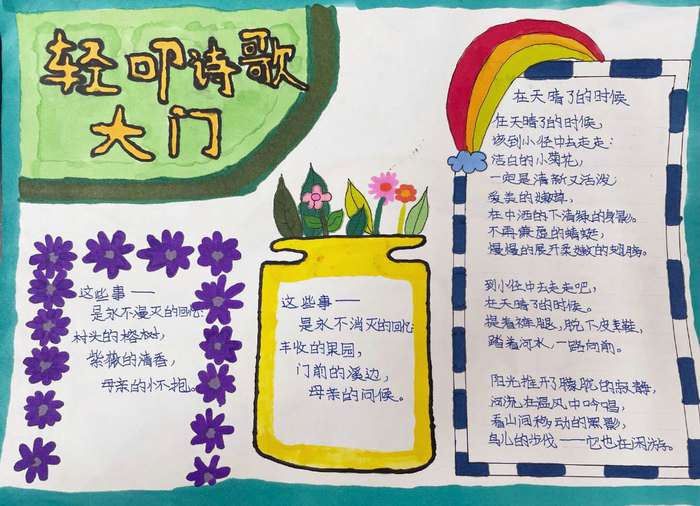 轻叩诗歌
大门
这些事——
是永不漫灭的回忆:
村头的榕树,
紫薇的清香,
母亲的怀抱。
这些事——
是永不消灭的回忆:
丰收的果园,
门前的溪边,
母亲的问候。
在天晴了的时候
在天晴了的时候,
该到小径中去走走:
洁白的小菊花,
一定是清新又活泼
爱美的嫩草,
在中洒的下清绿的身影。
不再廉虚的蝴蜓,
慢慢的展开柔嫩的翅膀。
到小径中去走走吧,
在天晴了的时候。
提着裤腿,脱下皮鞋,
踏着河水,一路向前。
阳光推开了朦胧的寂静,
河流在温风中吟唱,
看山间移动的黑影,
鸟儿的步伐——它也在闲游。